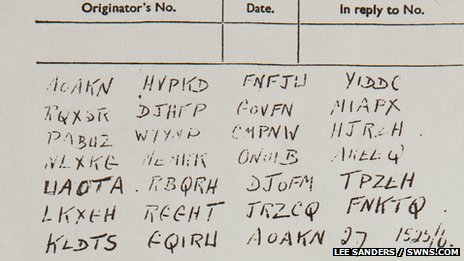 Originator's No. Date. In reply to No.
AOAKN HVPKD FNFJW YIDDC
RQXSR DJHFP GOVFN MIAPX
PABUZ WYYNP CMPNW HJRZH
NLXKG MEMKK ONOIB AKEEQ
UAOTA RBQRH DJOFM TPZEH
LKXGH RGGHT JRZCQ FNKTQ
KLDTS GQIRU AOAKN 27 1525/6.
LEE SANDERS / SWNS.COM